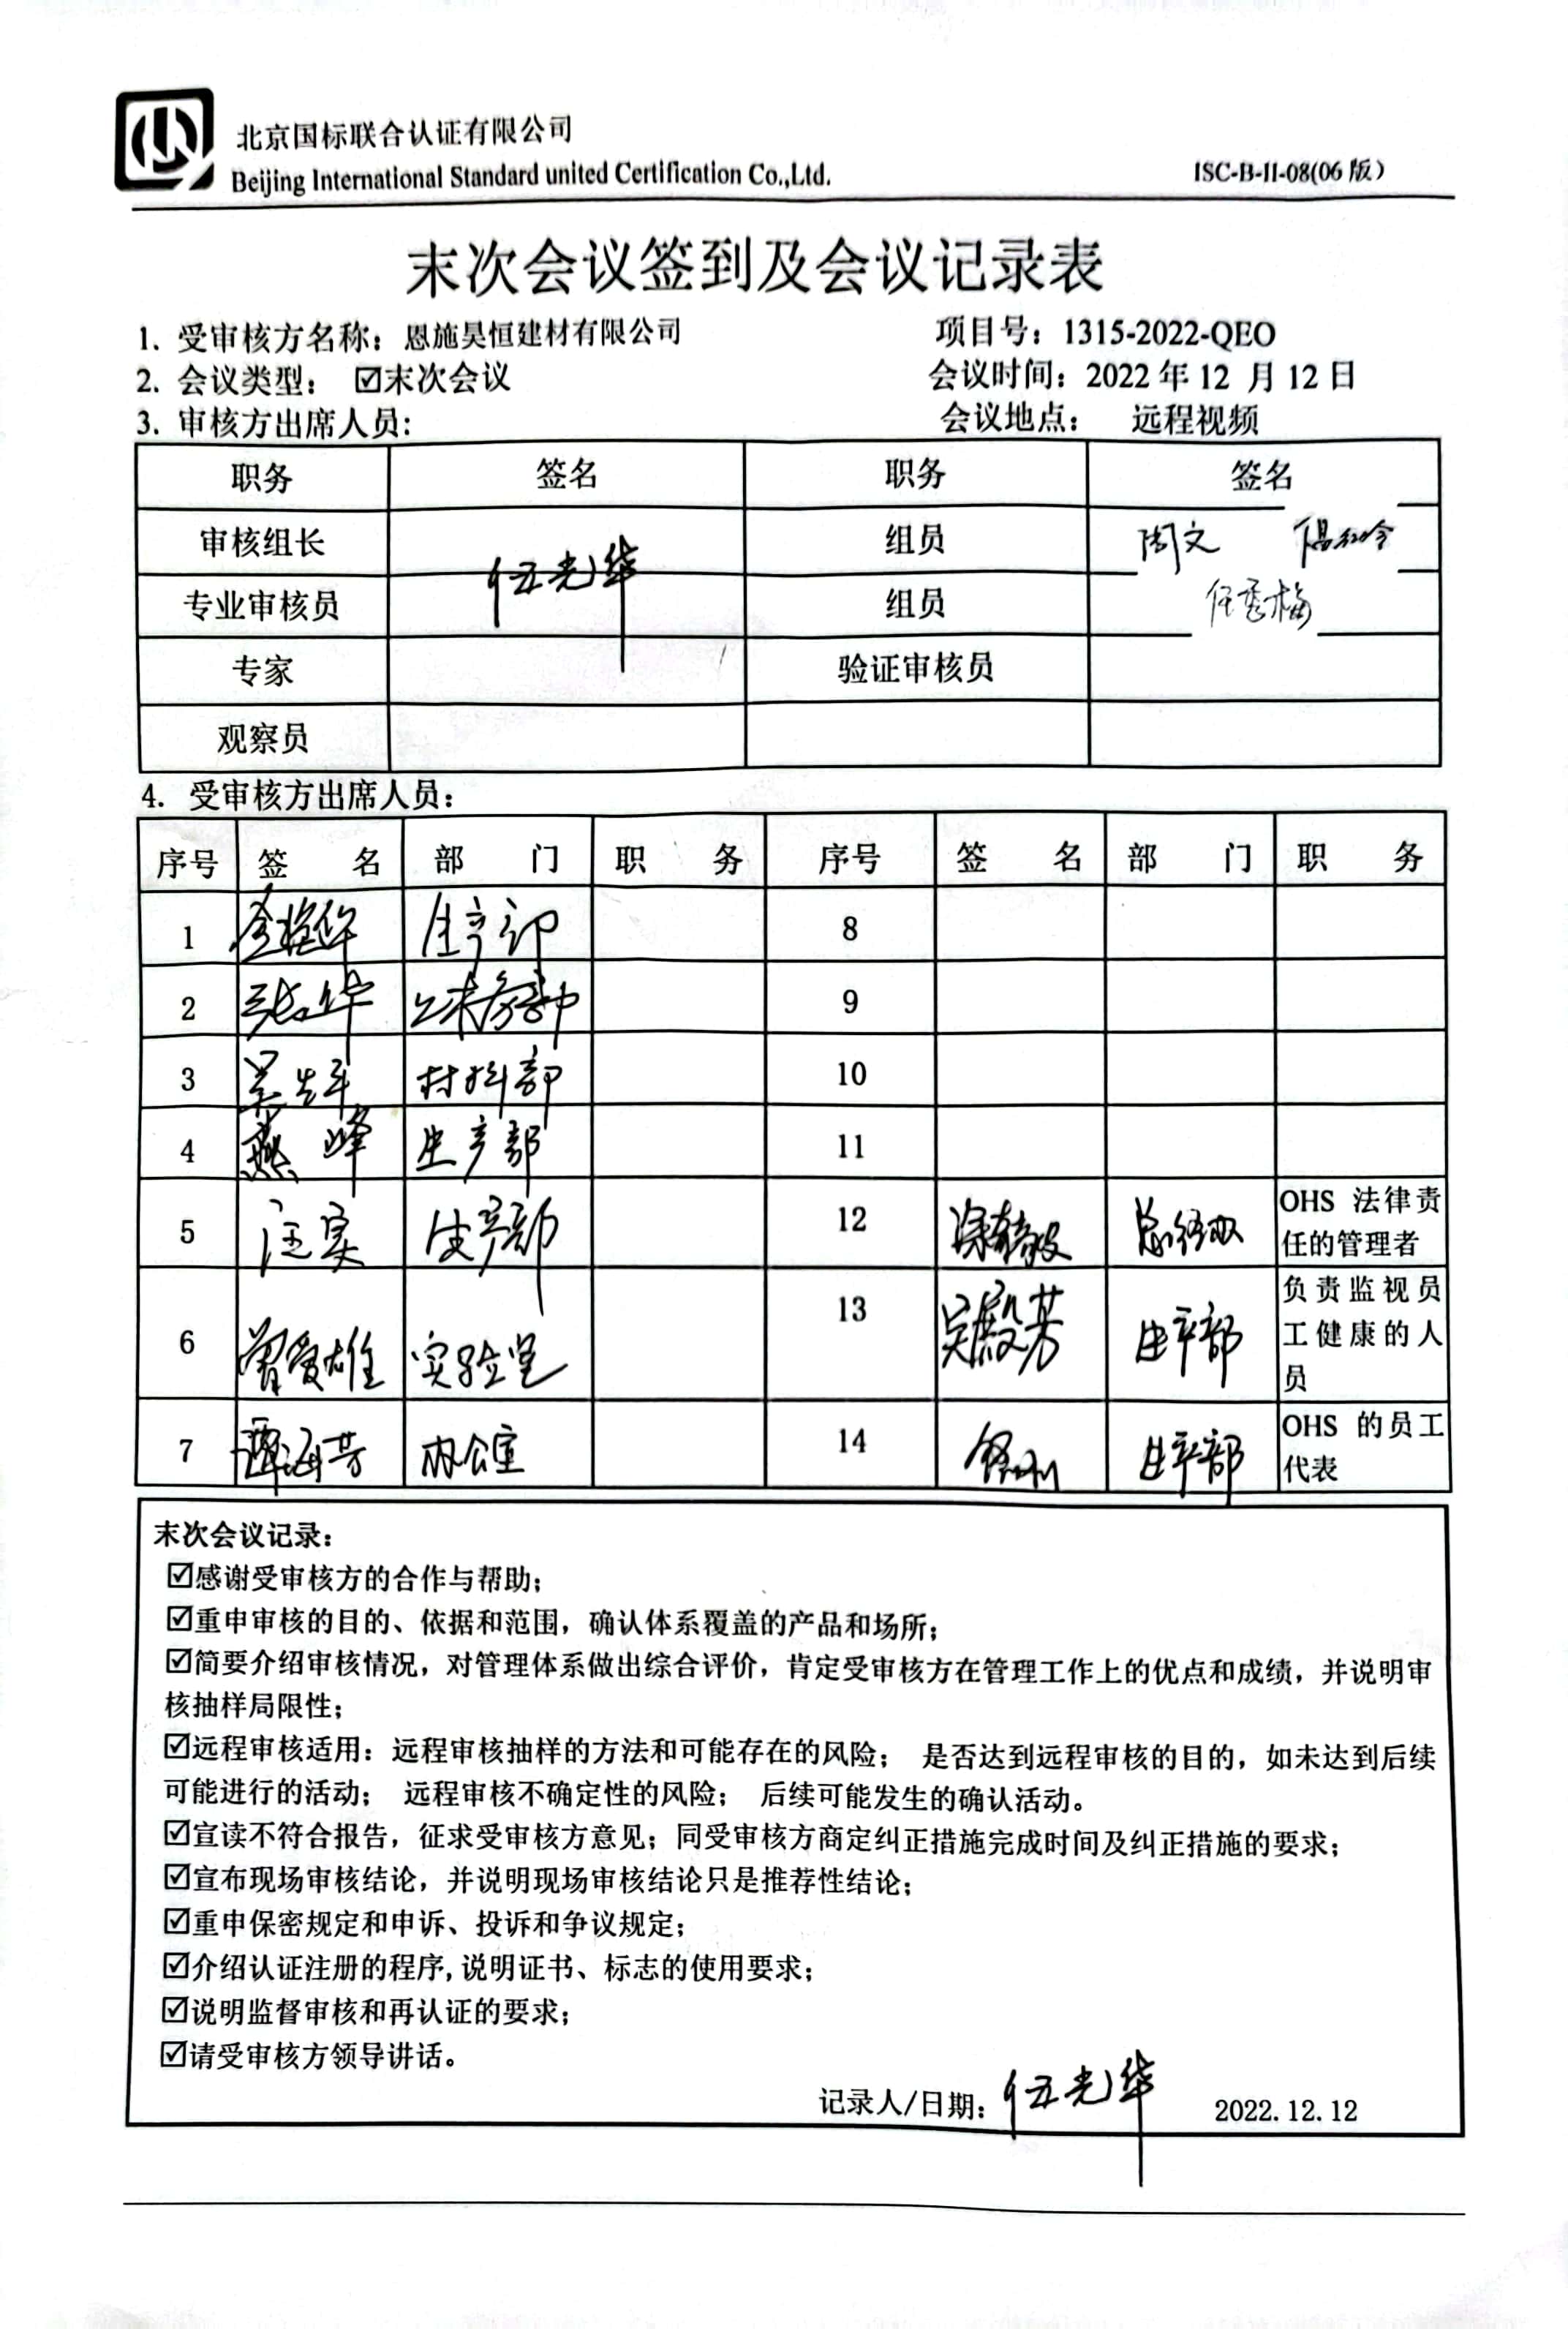 北京国标联合认证有限公司
Beijing International Standard united Certification Co.,Ltd.
ISC-B-II-08(06版)
末次会议签到及会议记录表
1. 受审核方名称：恩施昊恒建材有限公司 项目号：1315-2022-QEO
2. 会议类型： ☑末次会议 会议时间：2022 年 12 月 12 日
3. 审核方出席人员： 会议地点： 远程视频
职务 签名 职务 签名
审核组长 伍光华 组员 周文
专业审核员 组员 任秀梅
专家 验证审核员
观察员
4. 受审核方出席人员：
序号 签 名 部 门 职 务 序号 签 名 部 门 职 务
1 生产部 8
2 张华 业务部 9
3 材料部 10
4 燕峰 生产部 11
5 汪实 生产部 12 总经办 OHS 法律责
任的管理者
6 曾爱雄 实验室 13 吴殿芳 生产部 负责监视员
工健康的人
员
7 谭海芳 办公室 14 生产部 OHS 的员工
代表
末次会议记录：
☑感谢受审核方的合作与帮助；
☑重申审核的目的、依据和范围，确认体系覆盖的产品和场所；
☑简要介绍审核情况，对管理体系做出综合评价，肯定受审核方在管理工作上的优点和成绩，并说明审
核抽样局限性；
☑远程审核适用：远程审核抽样的方法和可能存在的风险； 是否达到远程审核的目的，如未达到后续
可能进行的活动； 远程审核不确定性的风险； 后续可能发生的确认活动。
☑宣读不符合报告，征求受审核方意见；同受审核方商定纠正措施完成时间及纠正措施的要求；
☑宣布现场审核结论，并说明现场审核结论只是推荐性结论；
☑重申保密规定和申诉、投诉和争议规定；
☑介绍认证注册的程序,说明证书、标志的使用要求；
☑说明监督审核和再认证的要求；
☑请受审核方领导讲话。
记录人/日期：伍光华 2022.12.12